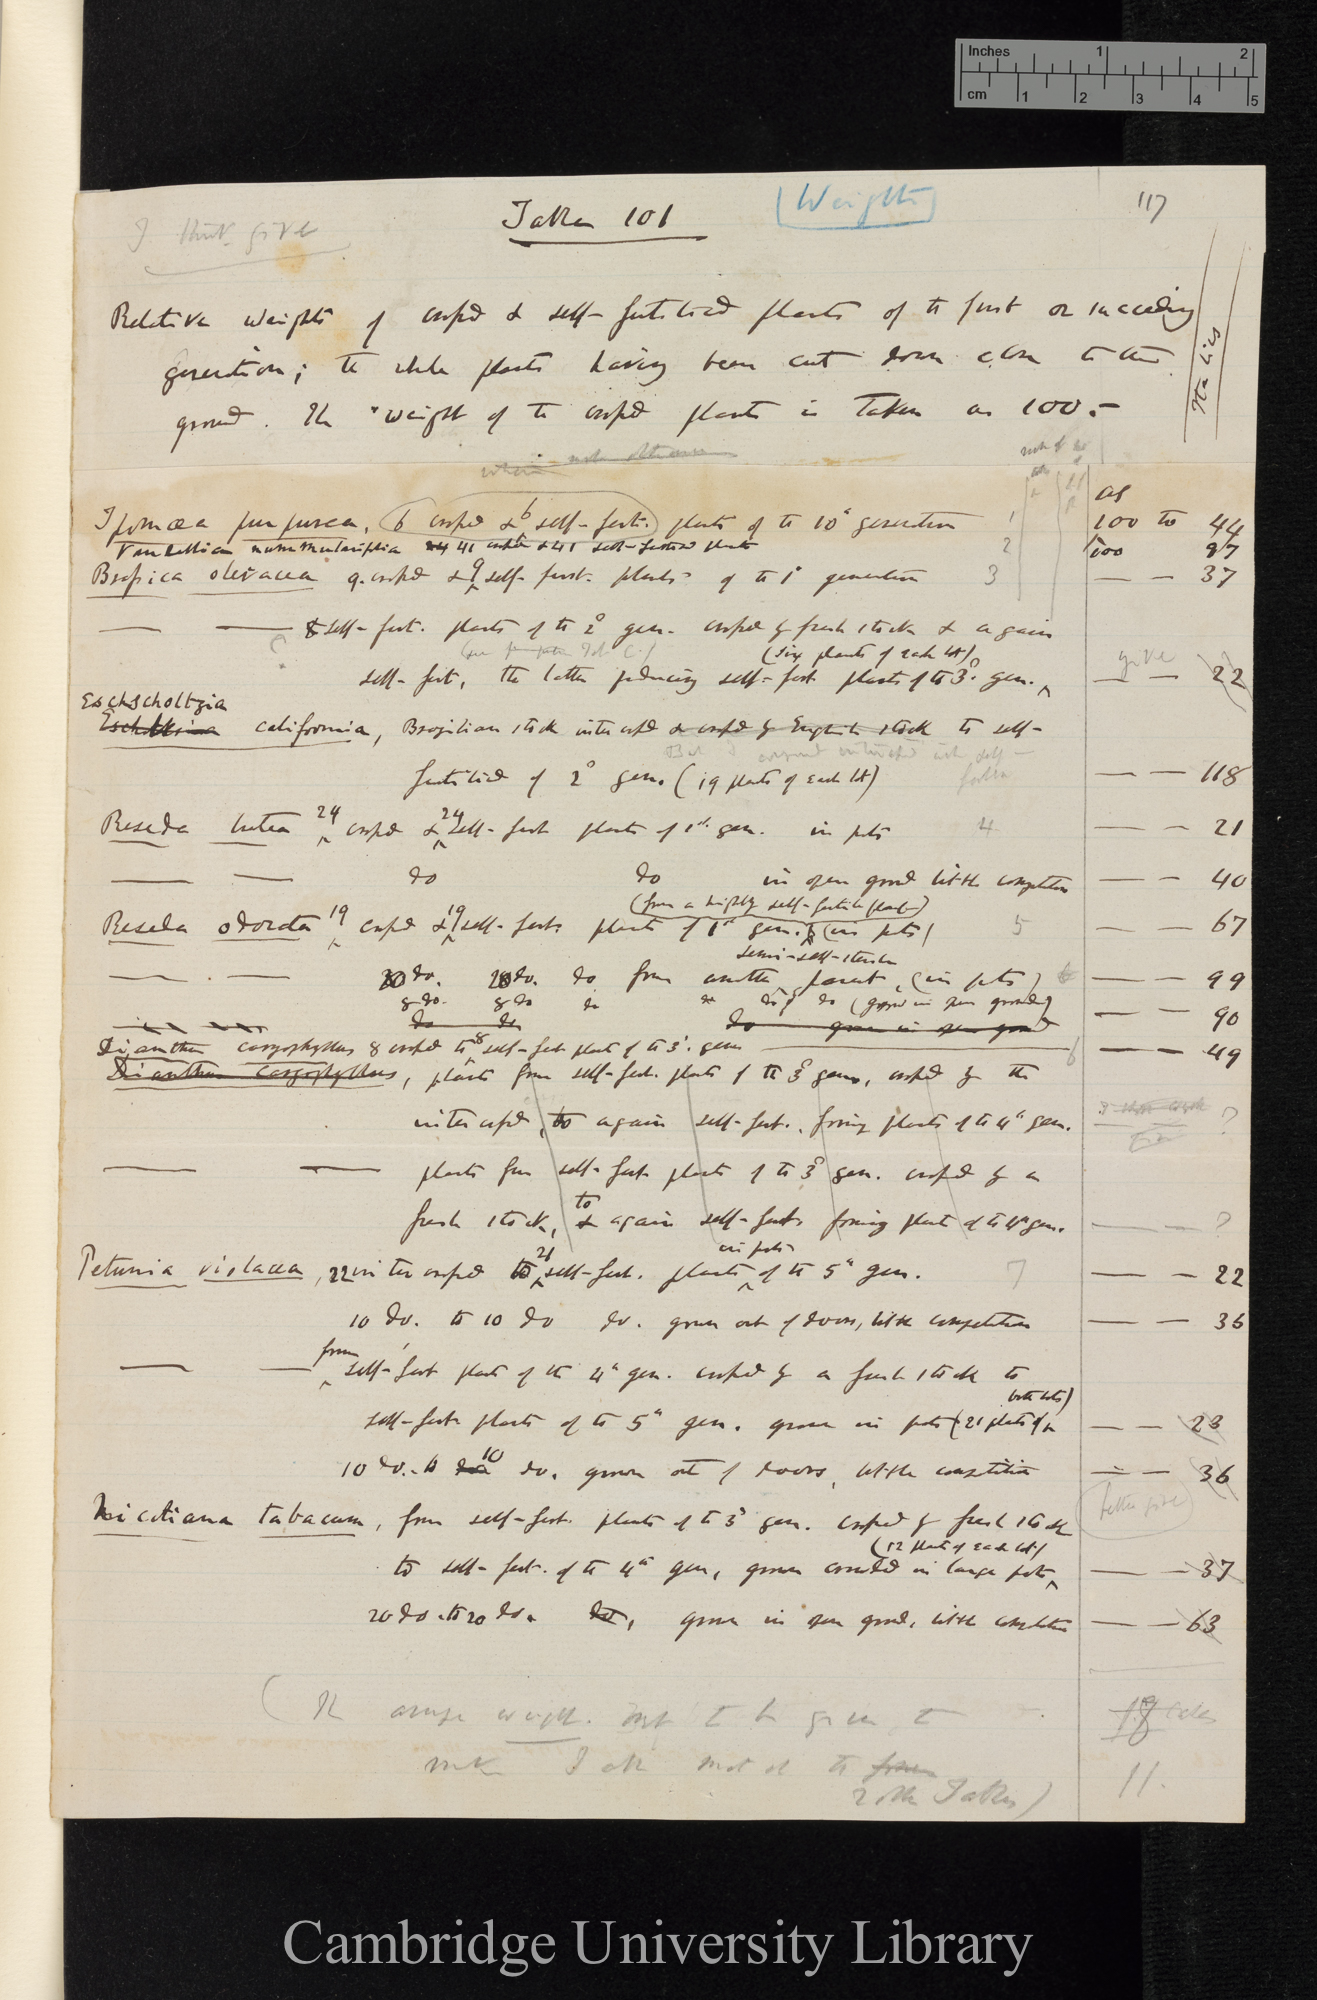 Inches 1 2
cm 1 2 3 4 5
117
I think give
Table 101
[Weights]
Relative weights of crossed & self-fertilised plants of the first or succeeding
generation; the whole plants having been cut down close to the
ground. The weight of the crossed plants is taken as 100.—
Italics
when not otherwise
as
Ipomœa purpurea, 6 crossed & 6 self-fert. plants of the 10th generation 1 100 to 44
Vandellia nummularifolia 41 crossed & 41 self-fertilised plants 2 100 97
Brassica oleracea 9 crossed & 9 self-fert. plants of the 1st generation 3 — — 37
— — self-fert. plants of the 2d gen. crossed by fresh stock & again
(six plants of each lot)
self-fert, the latter producing self-fert plants of the 3d gen. give — — 22
Eschscholtzia
californica, Brazilian stock intercrossed & crossed by English stock to self-
fertilised of 2d gen. (19 plants of each lot) — — 118
Reseda lutea 24 crossed & 24 self-fert plants of 1st gen. in pots 4 — — 21
— — do do in open ground little competition — — 40
(from a highly self-fertile plant)
Reseda odorata 19 crossed & 19 self-fert. plants of 1st gen. (in pots) 5 — — 67
semi-self-sterile
— — 20 do. 20 do. do from another parent, (in pots) — — 99
8 do. 8 do do do do (grown in open ground) — — 90
do do do grown in open ground
Dianthus caryophyllus 8 crossed to 8 self-fert plants of the 3d. gen 6 — — 49
Dianthus caryophyllus, plants from self-fert. plants of the 3d gen, crossed by the
intercrossed, to again self-fert., forming plants of the 4th gen. ?
— — plants from self-fert plants of the 3d gen. crossed by a
fresh stock, to & again self-fert. forming plants of the 4th gen. — — ?
in pots
Petunia violacea, 22 intercrossed to 21 self-fert. plants of the 5th gen. 7 — — 22
10 do. to 10 do do. grown out of doors, little competition — — 36
— — from self-fert plants of the 4th gen. crossed by a fresh stock to
both lots)
self-fert plants of the 5th gen. grown in pots (21 plants of — — 23
10 do. to 10 do. grown out of doors, little competition — — 36
better give
Nicotiana tabacum, from self-fert. plants of the 3d gen. crossed by fresh stock
(12 plants of each lot)
to self-fert. of the 4th gen, grown crowded in large pots — — 37
20 do. to 20 do. do, grown in open ground, little competition — — 63
(The average weight. must to be given to
make Table out of the
other Tables)
18 cases
11.
Cambridge University Library